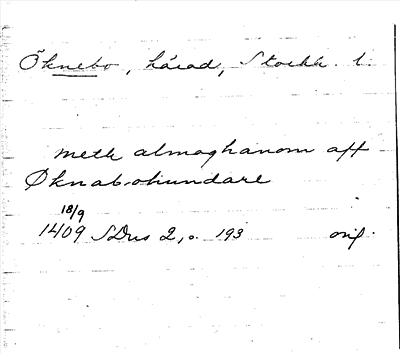 Öknebo, härad, Stockh. l.
meth almoghanom aff
Øknabohundare
18/9
1409 SDns 2, s. 193 orig.